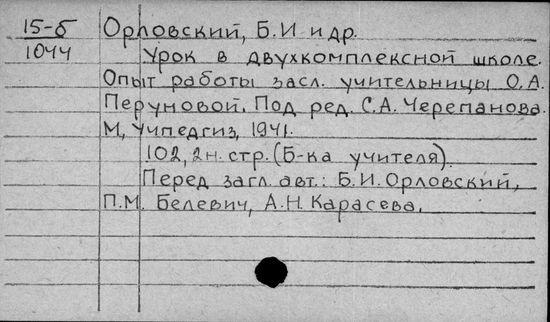 15-б Орловский, Б.И и др.
1044 Урок в двухкомплексной школе.
Опыт работы засл. учительницы О.А.
Перуновой. Под ред. С.А. Черепанова.
М, Учпедгиз, 1941.
102, 2н. стр. (Б-ка учителя).
Перед загл. авт.: Б.И. Орловский,
П.М. Белевич, А.Н. Карасева.